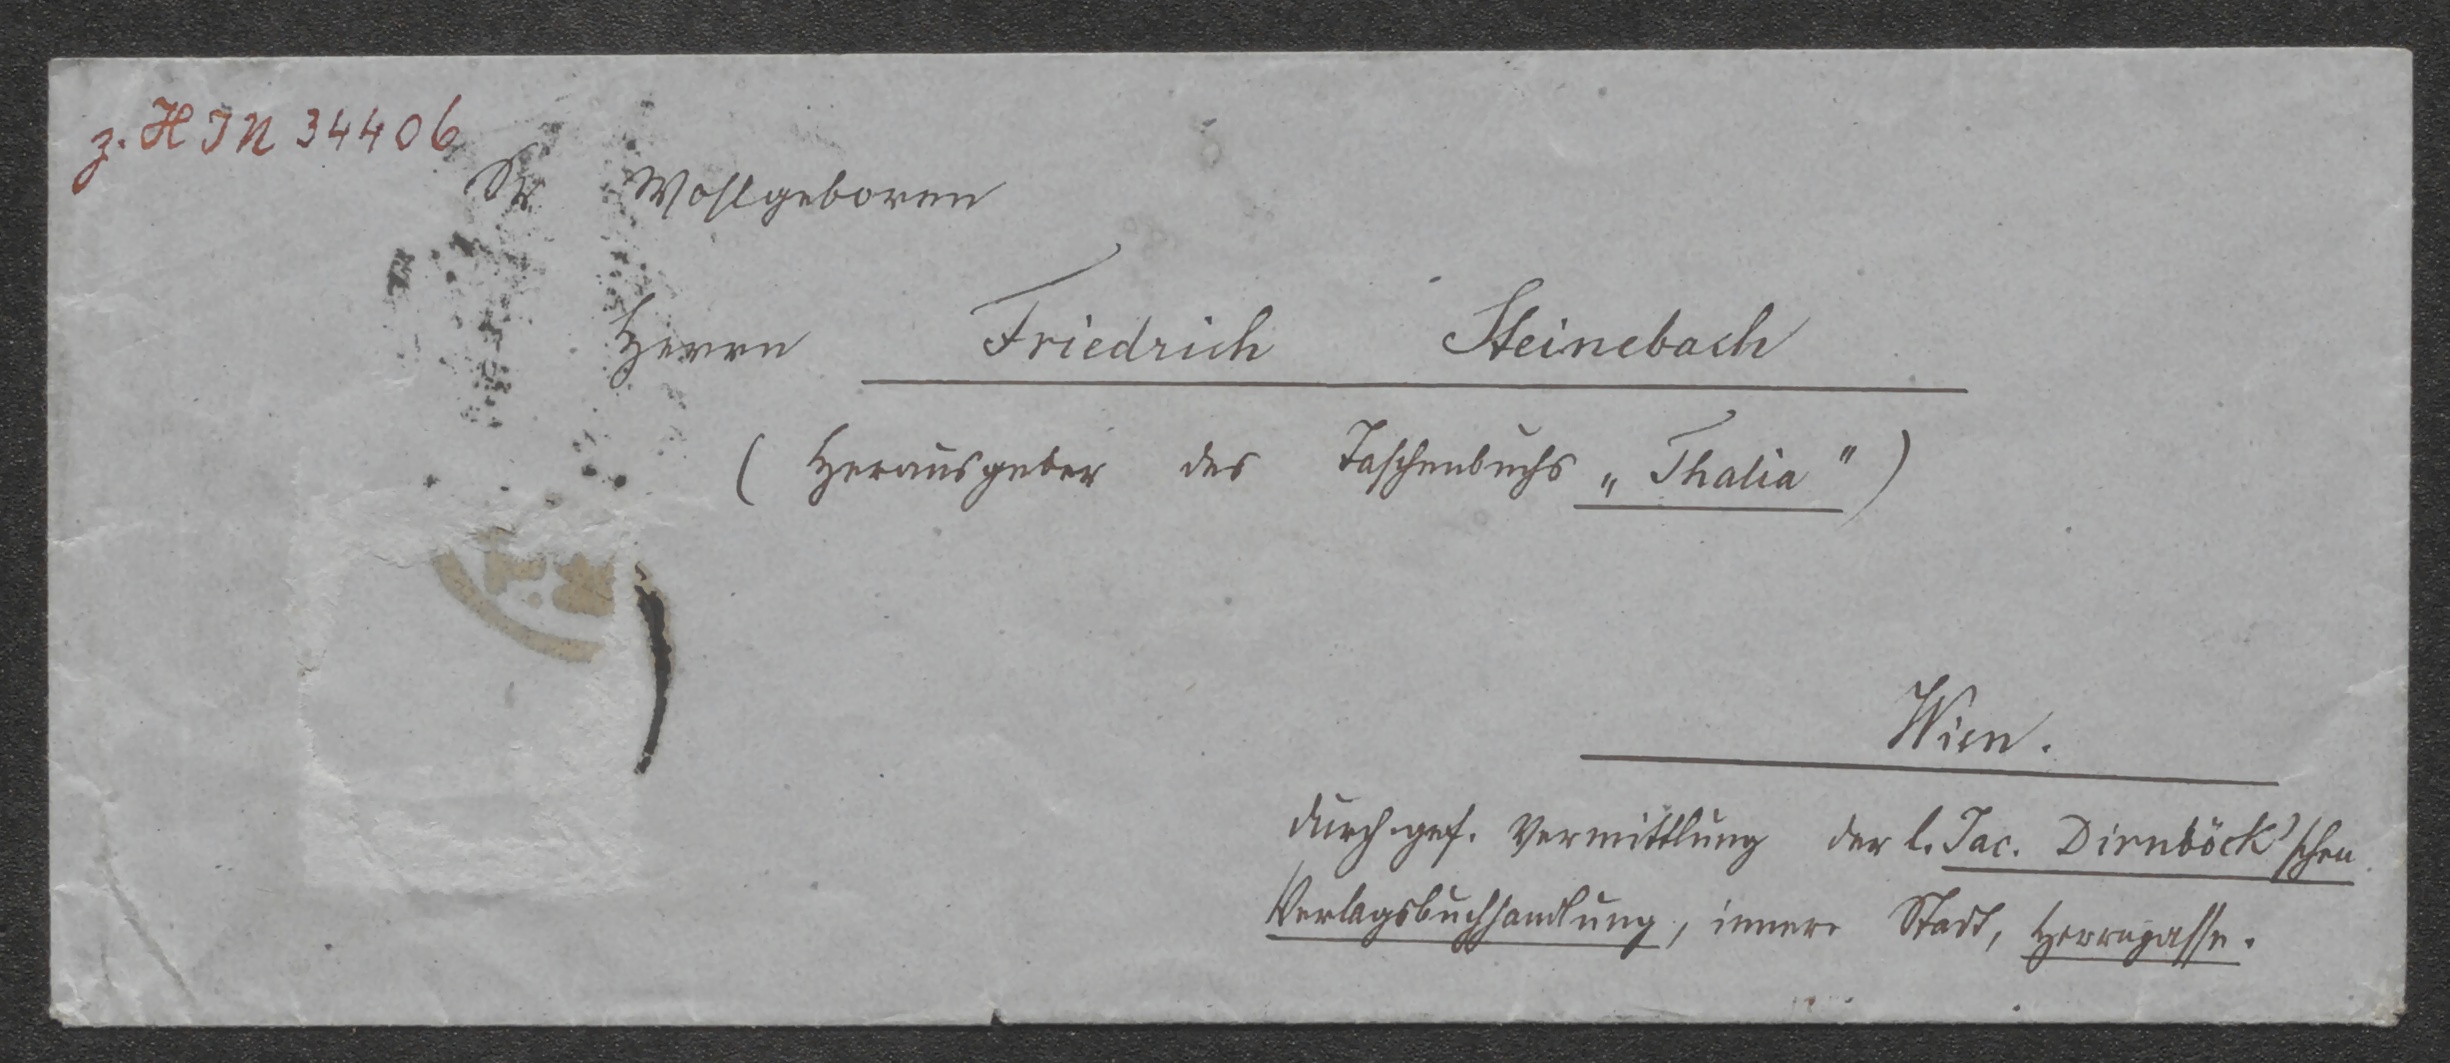 z. HIN 34406
Sr Wohlgeboren
Herrn Friedrich Steinebach
(Herausgeber des Taschenbuchs „Thalia")
Wien.
durch gef. Vermittlung der l. Jac. Dirnböck'schen
Verlagsbuchhandlung, innere Stadt, Herrngasse.